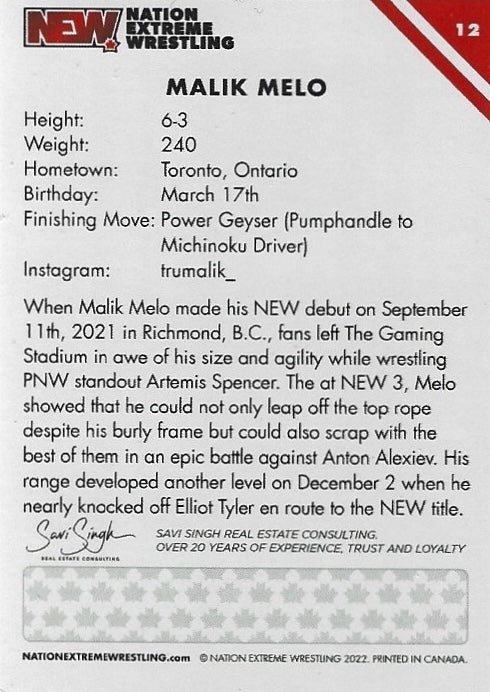 NEW
NATION
EXTREME
WRESTLING
12
MALIK MELO
Height: 6-3
Weight: 240
Hometown: Toronto, Ontario
Birthday: March 17th
Finishing Move: Power Geyser (Pumphandle to
Michinoku Driver)
Instagram: trumalik_
When Malik Melo made his NEW debut on September
11th, 2021 in Richmond, B.C., fans left The Gaming
Stadium in awe of his size and agility while wrestling
PNW standout Artemis Spencer. The at NEW 3, Melo
showed that he could not only leap off the top rope
despite his burly frame but could also scrap with the
best of them in an epic battle against Anton Alexiev. His
range developed another level on December 2 when he
nearly knocked off Elliot Tyler en route to the NEW title.
Savi Singh
REAL ESTATE CONSULTING
SAVI SINGH REAL ESTATE CONSULTING.
OVER 20 YEARS OF EXPERIENCE, TRUST AND LOYALTY
NATIONEXTREMEWRESTLING.com © NATION EXTREME WRESTLING 2022. PRINTED IN CANADA.